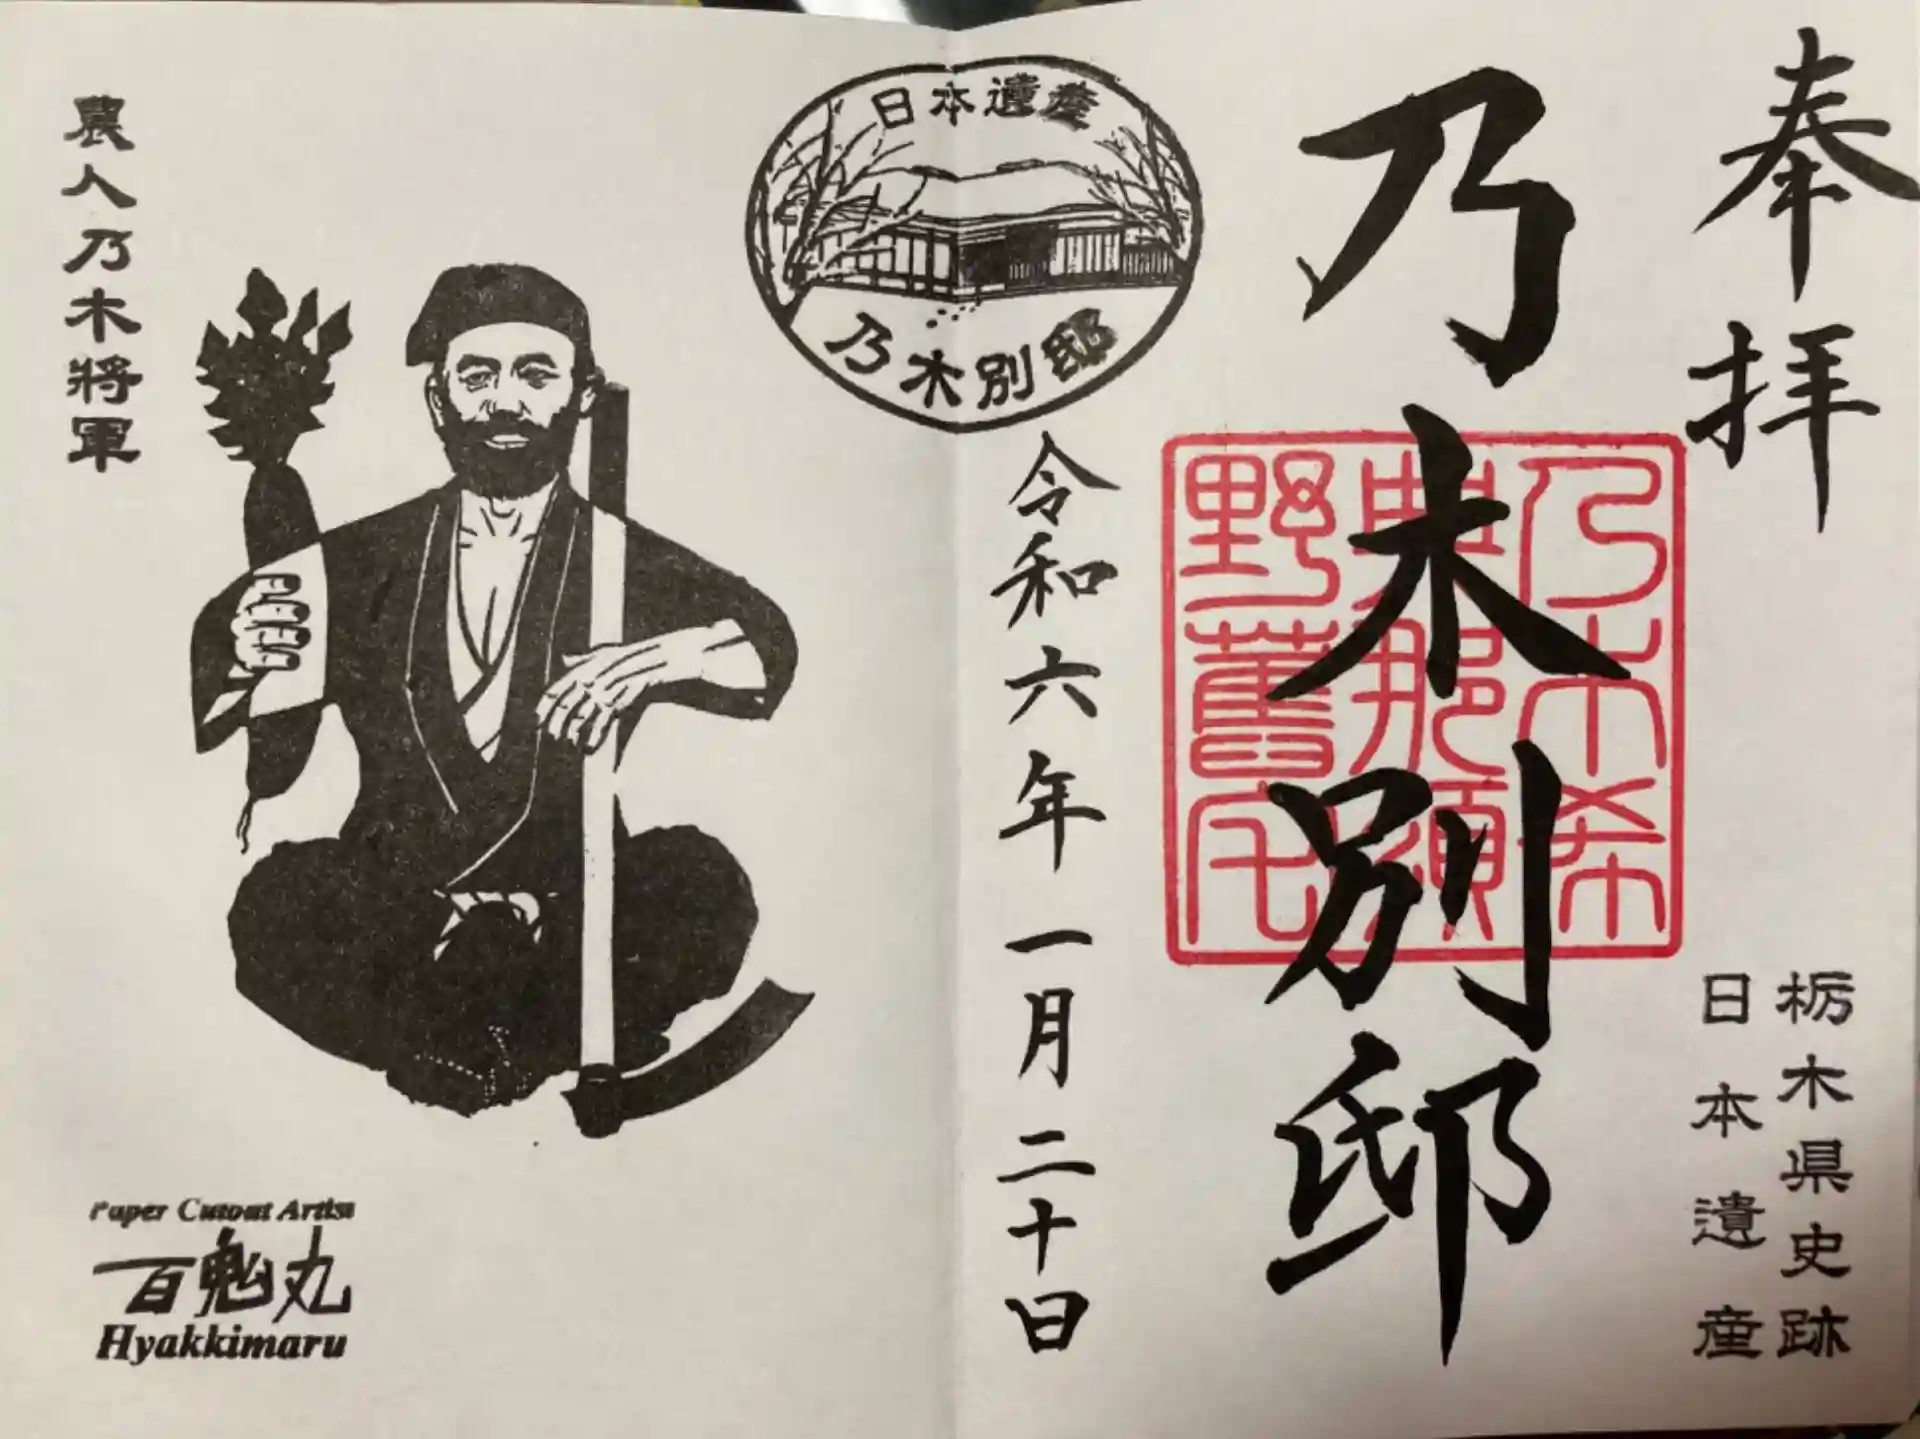 奉拝
乃木別邸
栃木県史跡
日本遺産
乃木希
典那須
野舊宅
令和六年一月二十日
日本遺産
乃木別邸
農人乃木将軍
Paper Cutout Artist
百鬼丸
Hyakkimaru